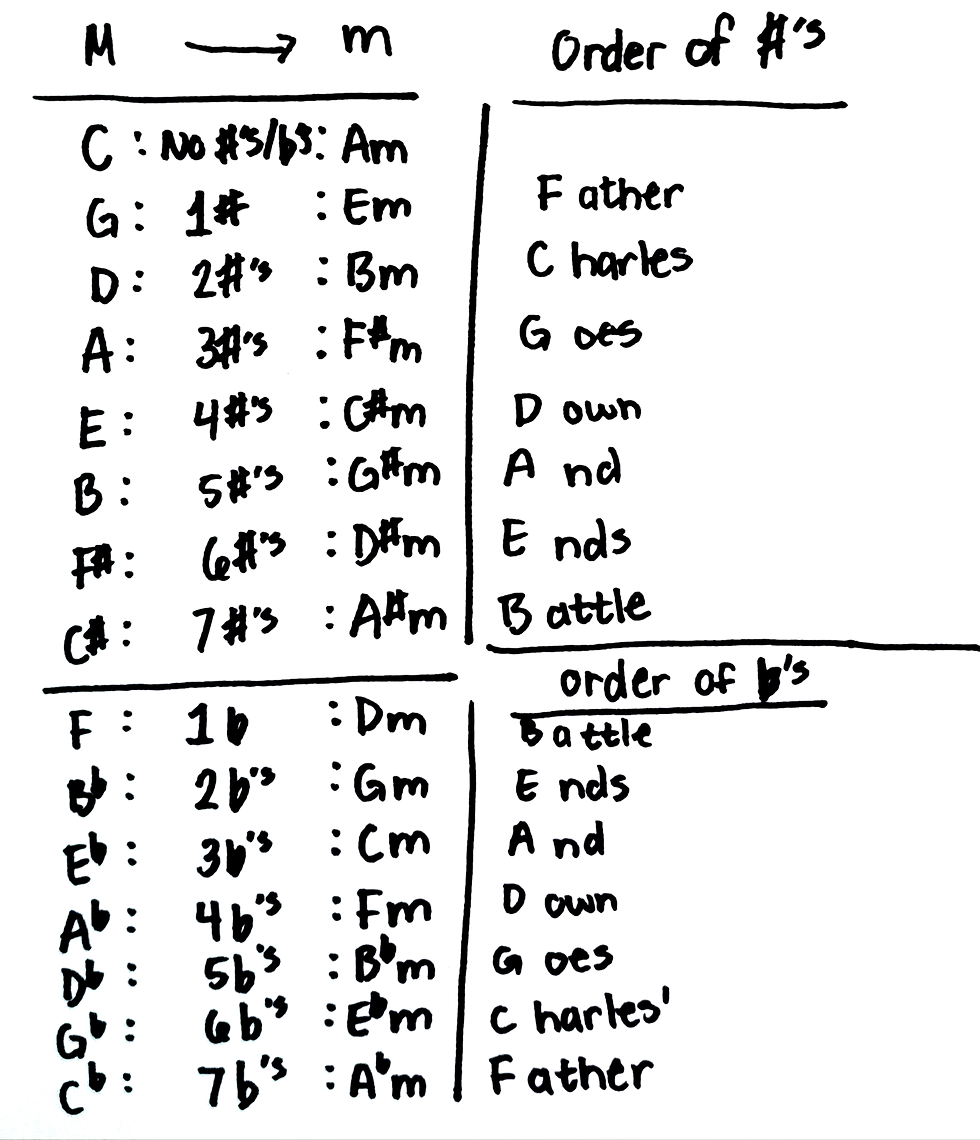 M → m
C : No #'s/b's : Am
G : 1# : Em
D : 2#'s : Bm
A : 3#'s : F#m
E : 4#'s : C#m
B : 5#'s : G#m
F# : 6#'s : D#m
C# : 7#'s : A#m
F : 1b : Dm
Bb : 2b's : Gm
Eb : 3b's : Cm
Ab : 4b's : Fm
Db : 5b's : Bbm
Gb : 6b's : Ebm
Cb : 7b's : Abm
Order of #'s
Father
Charles
Goes
Down
And
Ends
Battle
order of b's
Battle
Ends
And
Down
Goes
Charles'
Father